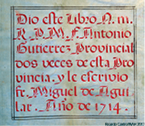 Dio este Libro N. m.
R. P. M. F. Antonio
Gutierrez Provincial
dos veces de esta Pro
vincia, y le escrivio
fr. Miguel de Agui
lar. Año de 1714.
Ricardo Castro